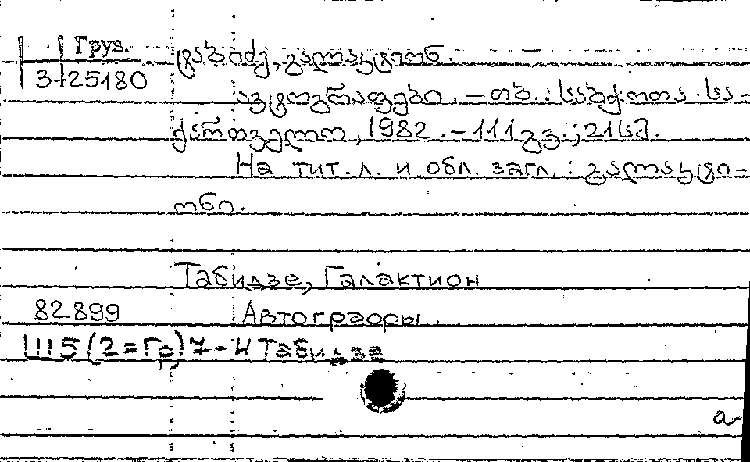 Груз.
3-25180
ტაბიძე, გალაკტიონ.
ავტოგრაფები. – თბ. : საბჭოთა სა-
ქართველო, 1982. – 111 გვ.; 21 სმ.
На тит. л. и обл. загл. : გალაკტი-
ონი.
Табидзе, Галактион
82.899 Автографы.
Ш5(2=Гр)7-4 Табидзе
а-